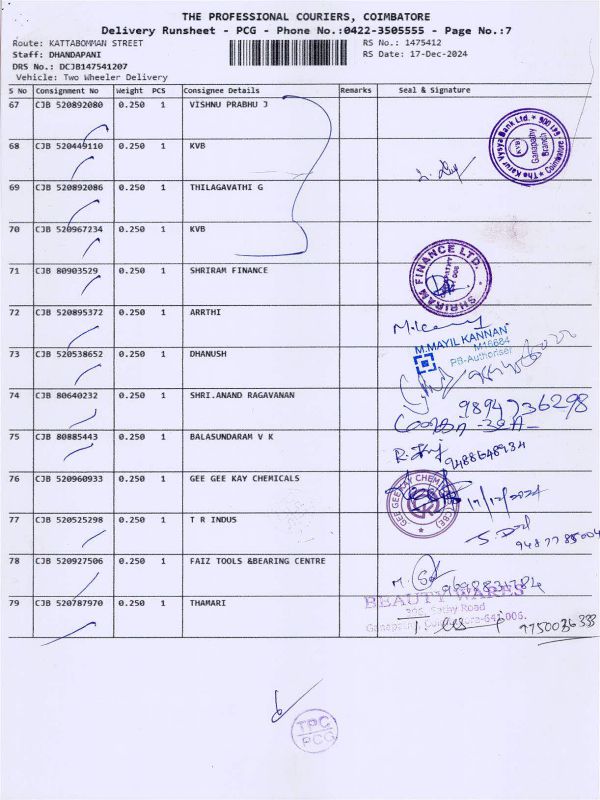 THE PROFESSIONAL COURIERS, COIMBATORE
Delivery Runsheet - PCG - Phone No.:0422-3505555 - Page No.:7
Route: KATTABOMMAN STREET RS No.: 1475412
Staff: DHANDAPANI RS Date: 17-Dec-2024
DRS No.: DCJB147541207
Vehicle: Two Wheeler Delivery
S No Consignment No Weight PCS Consignee Details Remarks Seal & Signature
67 CJB 520892080 0.250 1 VISHNU PRABHU J
68 CJB 520449110 0.250 1 KVB
The Karur Vysya Bank Ltd.
KVB
Ganapathy
Branch
Coimbatore
69 CJB 520892086 0.250 1 THILAGAVATHI G
70 CJB 520967234 0.250 1 KVB
71 CJB 80903529 0.250 1 SHRIRAM FINANCE
SHRIRAM FINANCE LTD.
72 CJB 520895372 0.250 1 ARRTHI
M.MAYIL KANNAN
M16684
PB-Authoriser
73 CJB 520538652 0.250 1 DHANUSH
74 CJB 80640232 0.250 1 SHRI.ANAND RAGAVANAN
9894736298
75 CJB 80885443 0.250 1 BALASUNDARAM V K
9488648934
76 CJB 520960933 0.250 1 GEE GEE KAY CHEMICALS
GEE GEE KAY CHEM
(CBE)
17/12/2024
77 CJB 520525298 0.250 1 T R INDUS
78 CJB 520927506 0.250 1 FAIZ TOOLS &BEARING CENTRE
79 CJB 520787970 0.250 1 THAMARI
BEAUTY WARES
Sathy Road
9750036333
TPC
PCG